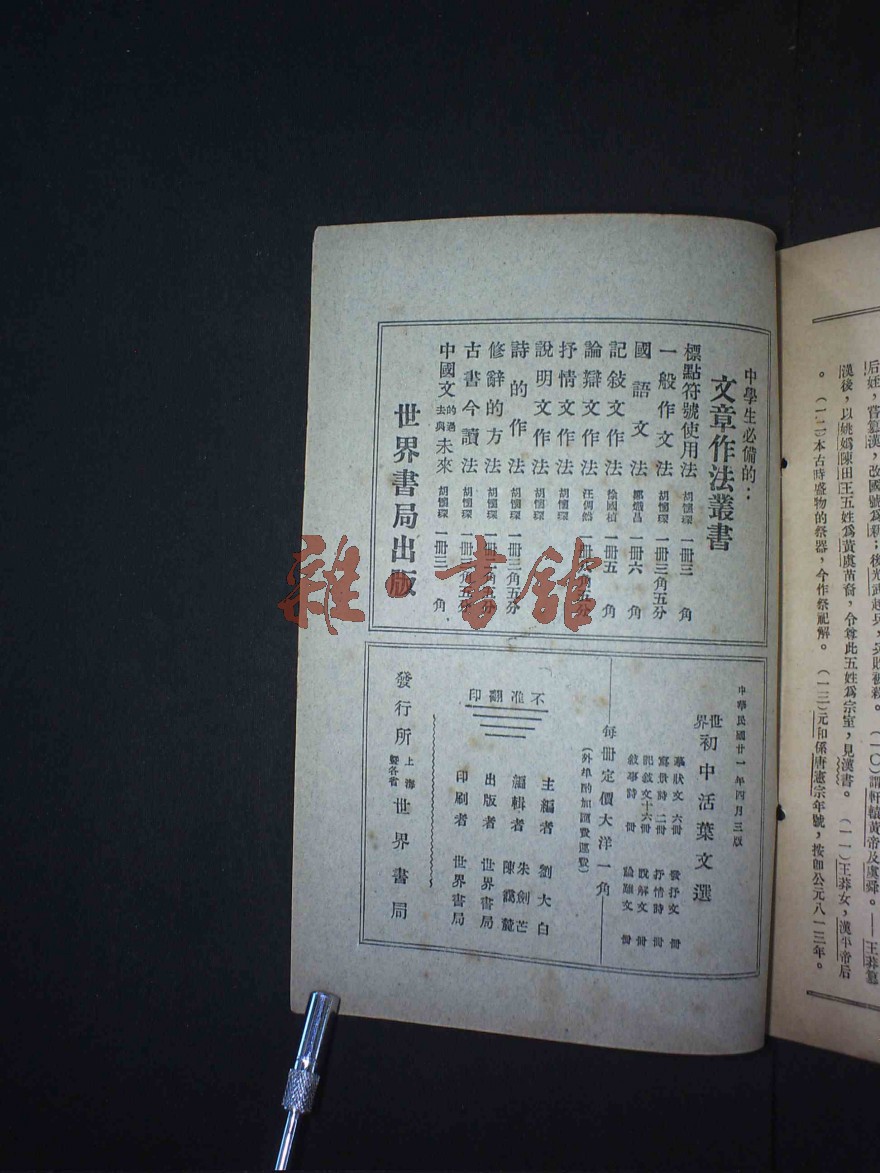 后妊，嘗
漢後，以姚嬀陳田王五姓爲黃虞苗裔，令尊此五姓爲宗室，見漢書。（一一）王莽女，漢平帝后
。（一二）本古時盛物的祭器，今作祭祀解。（一三）元和係唐憲宗年號，按卽公元八一三年。
中學生必備的：
文章作法叢書
標點符號使用法 胡懷琛 一冊三角
一般作文法 胡懷琛 一冊三角五分
國語文法 一冊六角
記敍文作法 徐國楨 一冊五角
論辯文作法 汪倜然
抒情文作法 胡懷琛 一冊
說明文作法 胡懷琛 一冊
詩的作法 胡懷琛 一冊二角五分
修辭的方法 胡懷琛 一冊
古書今讀法 胡懷琛 一冊
中國文的過去與未來 胡懷琛 一冊三角
世界書局出版
中華民國廿一年四月三版
世界初中活葉文選
寫景詩 二冊 抒情詩 冊
記敍文 十六冊 說解文 冊
敍事詩 冊
每冊定價大洋一角
不准翻印
主編者 劉大白
編輯者 朱劍芒 陳靄麓
出版者 世界書局
印刷者 世界書局
發行所 上海暨各省 世界書局
雜·書館